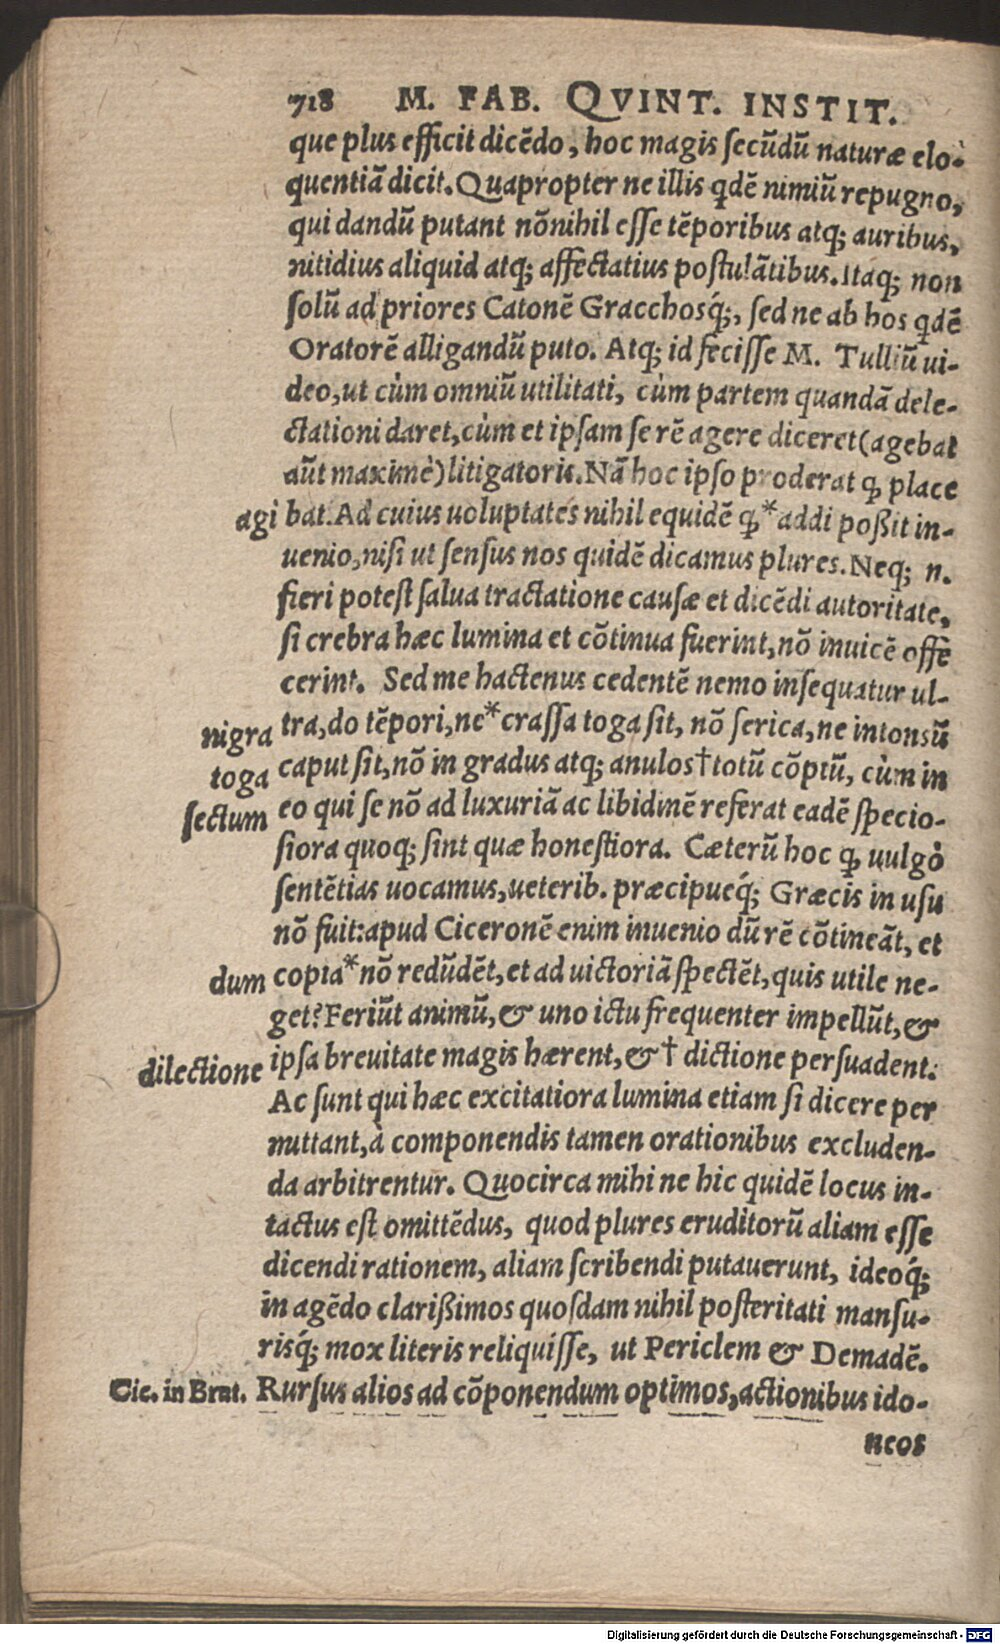 718 M. FAB. QVINT. INSTIT.
que plus efficit dicēdo, hoc magis ſecūdū naturæ elo-
quentiā dicit. Quapropter ne illis qdē nimiū repugno,
qui dandū putant nōnihil eſſe tēporibus atq; auribus,
nitidius aliquid atq; affectatius poſtulātibus. Itaq; non
ſolū ad priores Catonē Gracchosq́;, ſed ne ab hos qdē
Oratorē alligandū puto. Atq; id feciſſe M. Tulliū ui-
deo, ut cùm omniū utilitati, cùm partem quandā dele-
ctationi daret, cùm et ipſam ſe rē agere diceret (agebat
aūt maximè) litigatoris. Nā hoc ipſo proderat ꝙ place
agi bat. Ad cuius uoluptates nihil equidē ꝙ * addi poßit in-
uenio, niſi ut ſenſus nos quidē dicamus plures. Neq; n.
fieri poteſt ſalua tractatione cauſæ et dicēdi autoritate,
ſi crebra hæc lumina et cōtinua fuerint, nō inuicē offe
cerint. Sed me hactenus cedentē nemo inſequatur ul-
nigra tra, do tēpori, ne * craſſa toga ſit, nō ſerica, ne intonsū
toga caput ſit, nō in gradus atq; anulos † totū cōptū, cùm in
ſectum eo qui ſe nō ad luxuriā ac libidinē referat eadē ſpecio-
ſiora quoq; ſint quæ honeſtiora. Cæterū hoc ꝙ uulgò
ſentētias uocamus, ueterib. præcipueq́; Græcis in uſu
nō fuit: apud Ciceronē enim inuenio dū rē cōtineāt, et
dum copia * nō redūdēt, et ad uictoriā ſpectēt, quis utile ne-
get? Feriūt animū, & uno ictu frequenter impellūt, &
dilectione ipſa breuitate magis hærent, & † dictione perſuadent.
Ac ſunt qui hæc excitatiora lumina etiam ſi dicere per
mittant, à componendis tamen orationibus excluden-
da arbitrentur. Quocirca mihi ne hic quidē locus in-
tactus eſt omittēdus, quod plures eruditorū aliam eſſe
dicendi rationem, aliam ſcribendi putauerunt, ideoq́;
in agēdo clarißimos quoſdam nihil poſteritati manſu-
risq́; mox literis reliquiſſe, ut Periclem & Demadē.
Cic. in Brut. Rurſus alios ad cōponendum optimos, actionibus ido-
neos
Digitalisierung gefördert durch die Deutsche Forschungsgemeinschaft - DFG